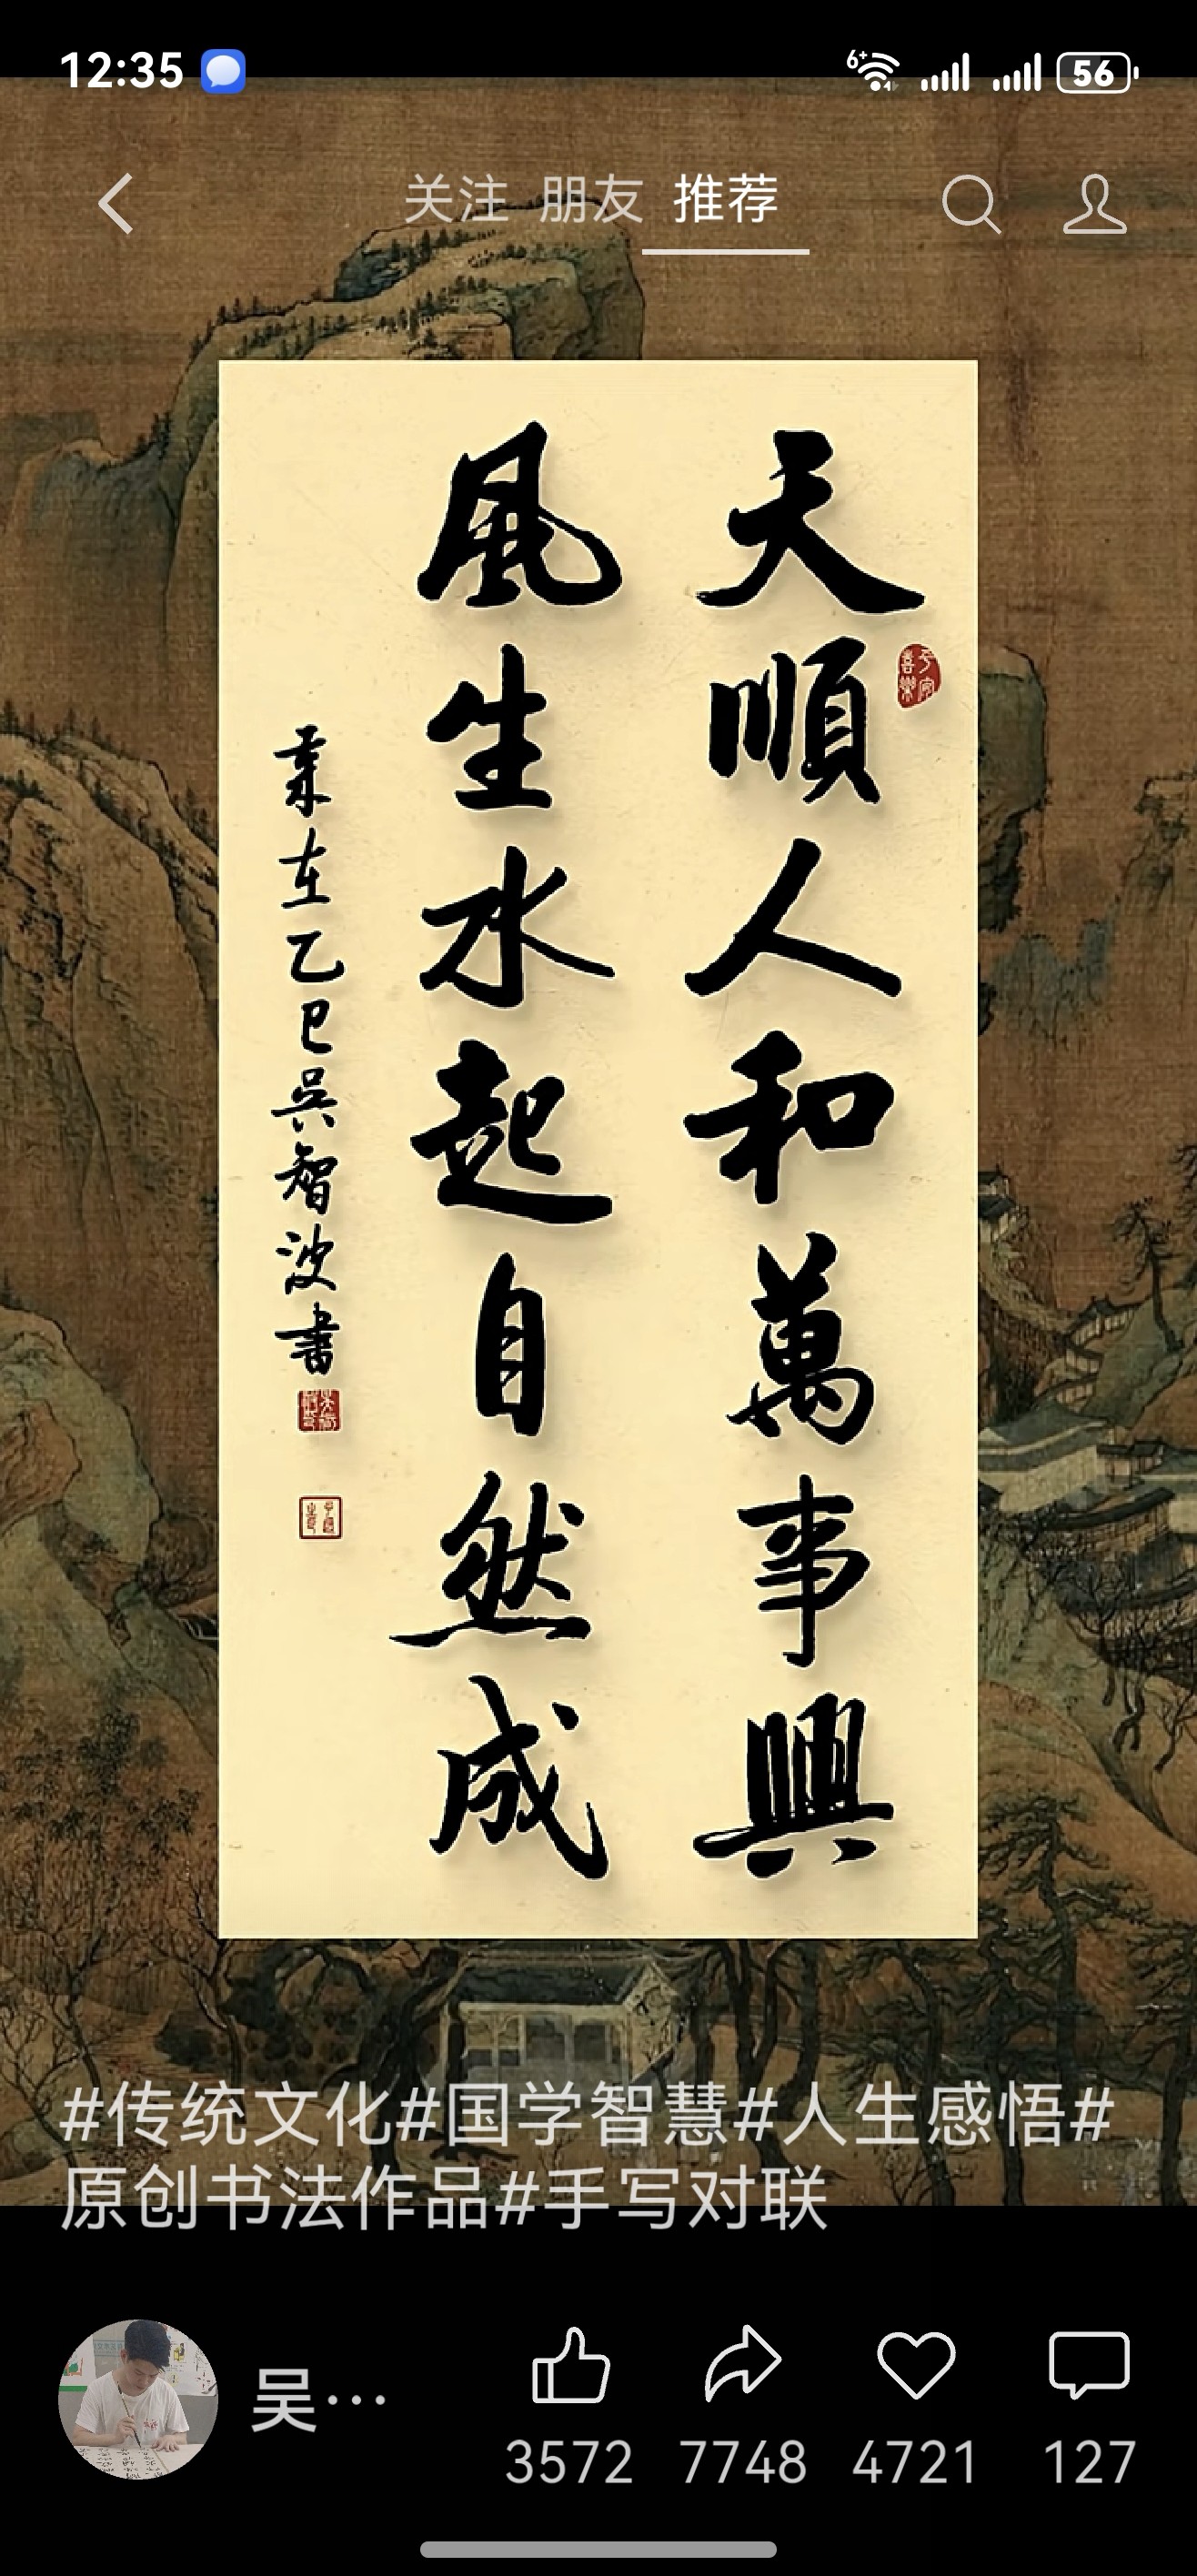 12:35
6+
56
关注 朋友 推荐
天順人和萬事興
風生水起自然成
歲在乙巳吳智波書
#传统文化#国学智慧#人生感悟#
原创书法作品#手写对联
吴…
3572 7748 4721 127